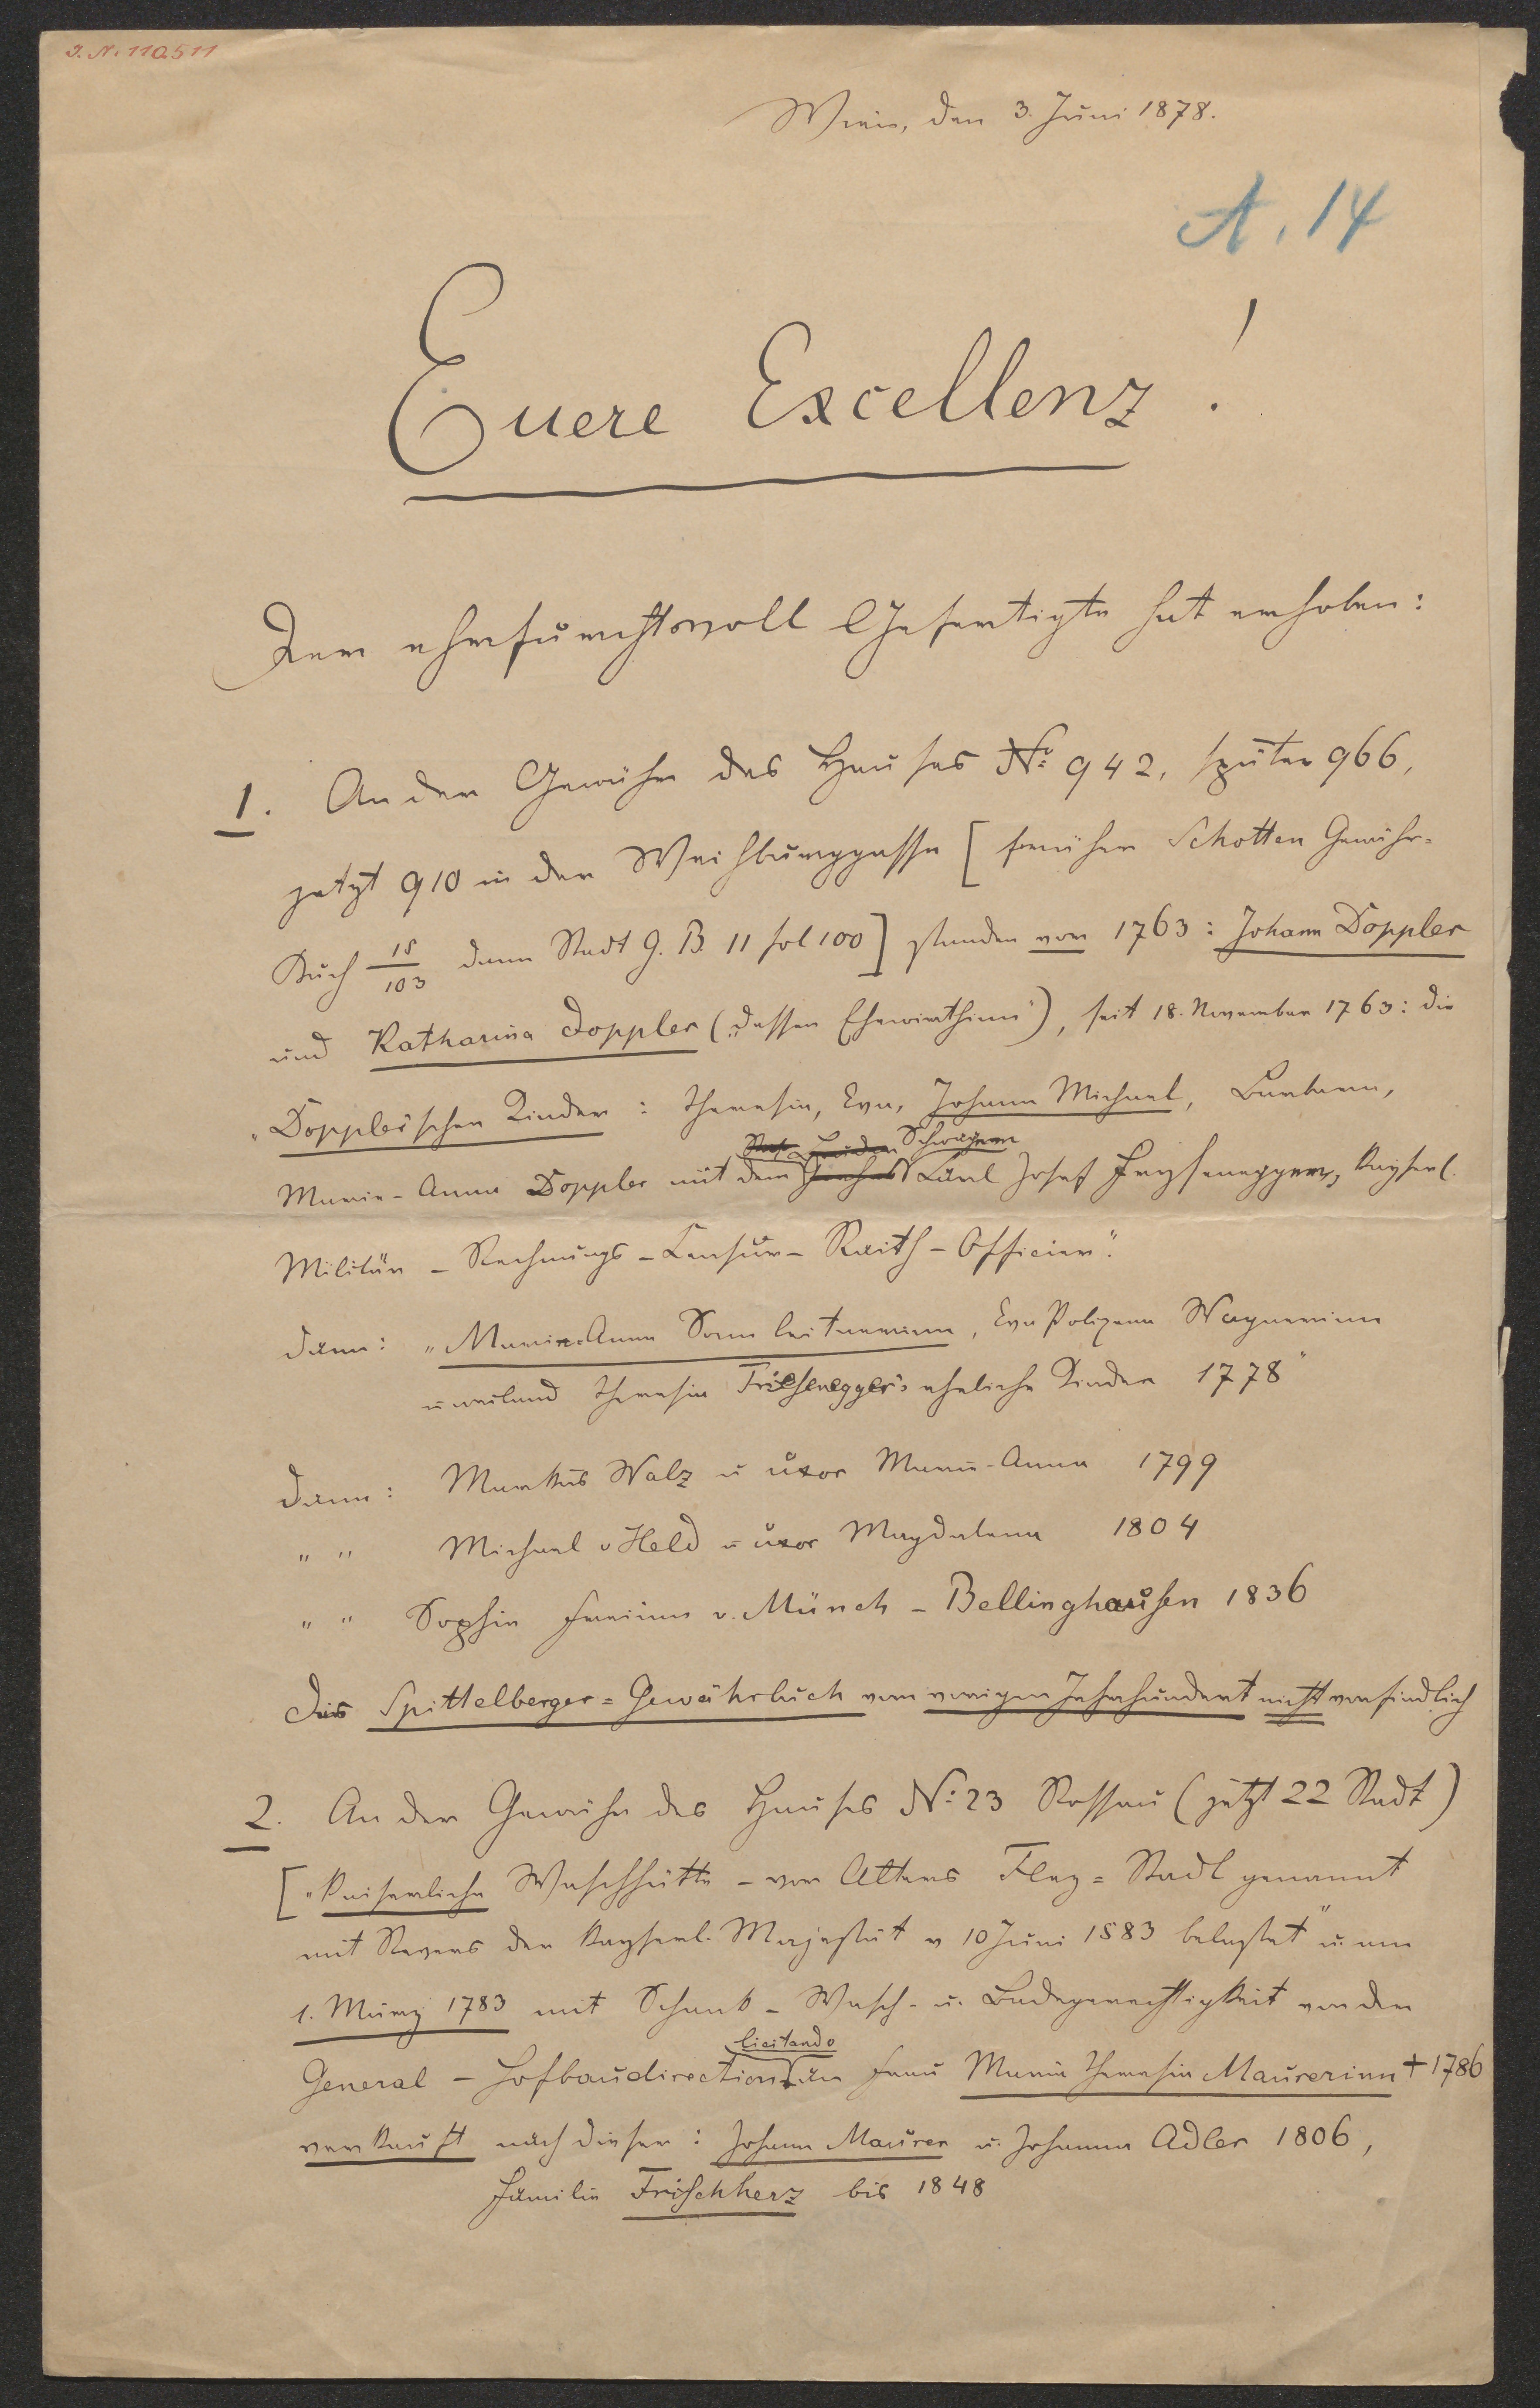 I. N. 110.511
Wien, den 3. Juni 1878.
A. 14
Euere Excellenz!
Der ehrfurchtsvoll Gefertigte hat erhoben:
1. An der Gewähr des Hauses No. 942, später 966,
jetzt 910 in der Weihburggasse [früher Schotten Gewähr-
Buch 15/103 dann Stadt G. B. 11 fol 100] standen vor 1763: Johann Doppler
und Katharina Doppler („dessen Ehewirthinn“), seit 18. November 1763: die
„Doppler'schen Kinder: Theresia, Eva, Johann Michael, Barbara,
Schwagern
Maria-Anna Doppler mit dem Karl Josef Freysenegger, kayserl.
Militär-Rechnungs-Censur-Raith-Officier“.
dann: „Maria-Anna Sonnleitnerinn, Eva Polixena Wagnerinn
u weiland Theresia Friesenegger's eheliche Kinder 1778“
dann: Markus Walz u uxor Maria-Anna 1799
" " Michael v Held u uxor Magdalena 1804
" " Sophie Freiinn v. Münch-Bellinghausen 1836
Das Spittelberger-Gewährbuch vom vorigen Jahrhundert nicht vorfindlich
2. An der Gewähr des Hauses No. 23 Rossau (jetzt 22 Stadt)
[„kaiserliche Waschhütte - vor Alters Flez-Stadl genannt
mit Revers der kayserl. Majestät v 10 Juni 1583 belastet“ u. am
1. März 1783 mit Schank-Wasch- u. Badegerechtigkeit von der
licitando
General-Hofbaudirection an Frau Maria Theresia Maurerinn † 1786
verkauft nach dieser: Johann Maurer u. Johanna Adler 1806,
Familie Frischherz bis 1848